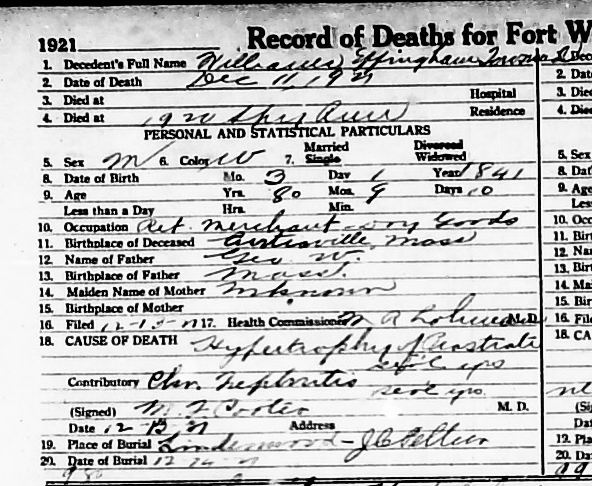 1921 Record of Deaths for Fort W
1. Decedent's Full Name William Effingham Townsend
2. Date of Death Dec 11, 1921
3. Died at Hospital
4. Died at 1920 Spy Run Residence
PERSONAL AND STATISTICAL PARTICULARS
5. Sex M 6. Color W 7. Married Single Divorced Widowed
8. Date of Birth Mo. 3 Day 1 Year 1841
9. Age Yrs. 80 Mos. 9 Days 10
Less than a Day Hrs. Min.
10. Occupation Ret. Merchant - Dry Goods
11. Birthplace of Deceased Mass
12. Name of Father Geo W.
13. Birthplace of Father Mass.
14. Maiden Name of Mother Unknown
15. Birthplace of Mother
16. Filed 12-13-21 17. Health Commissioner M.D.
18. CAUSE OF DEATH Hypertrophy of Prostrate
sev'l yrs
Contributory Chr. Nephritis sev'l yrs
(Signed) M. F. Porter M. D.
Date 12-13-21 Address
19. Place of Burial Lindenwood - J C Peltier
20. Date of Burial 12-14-21